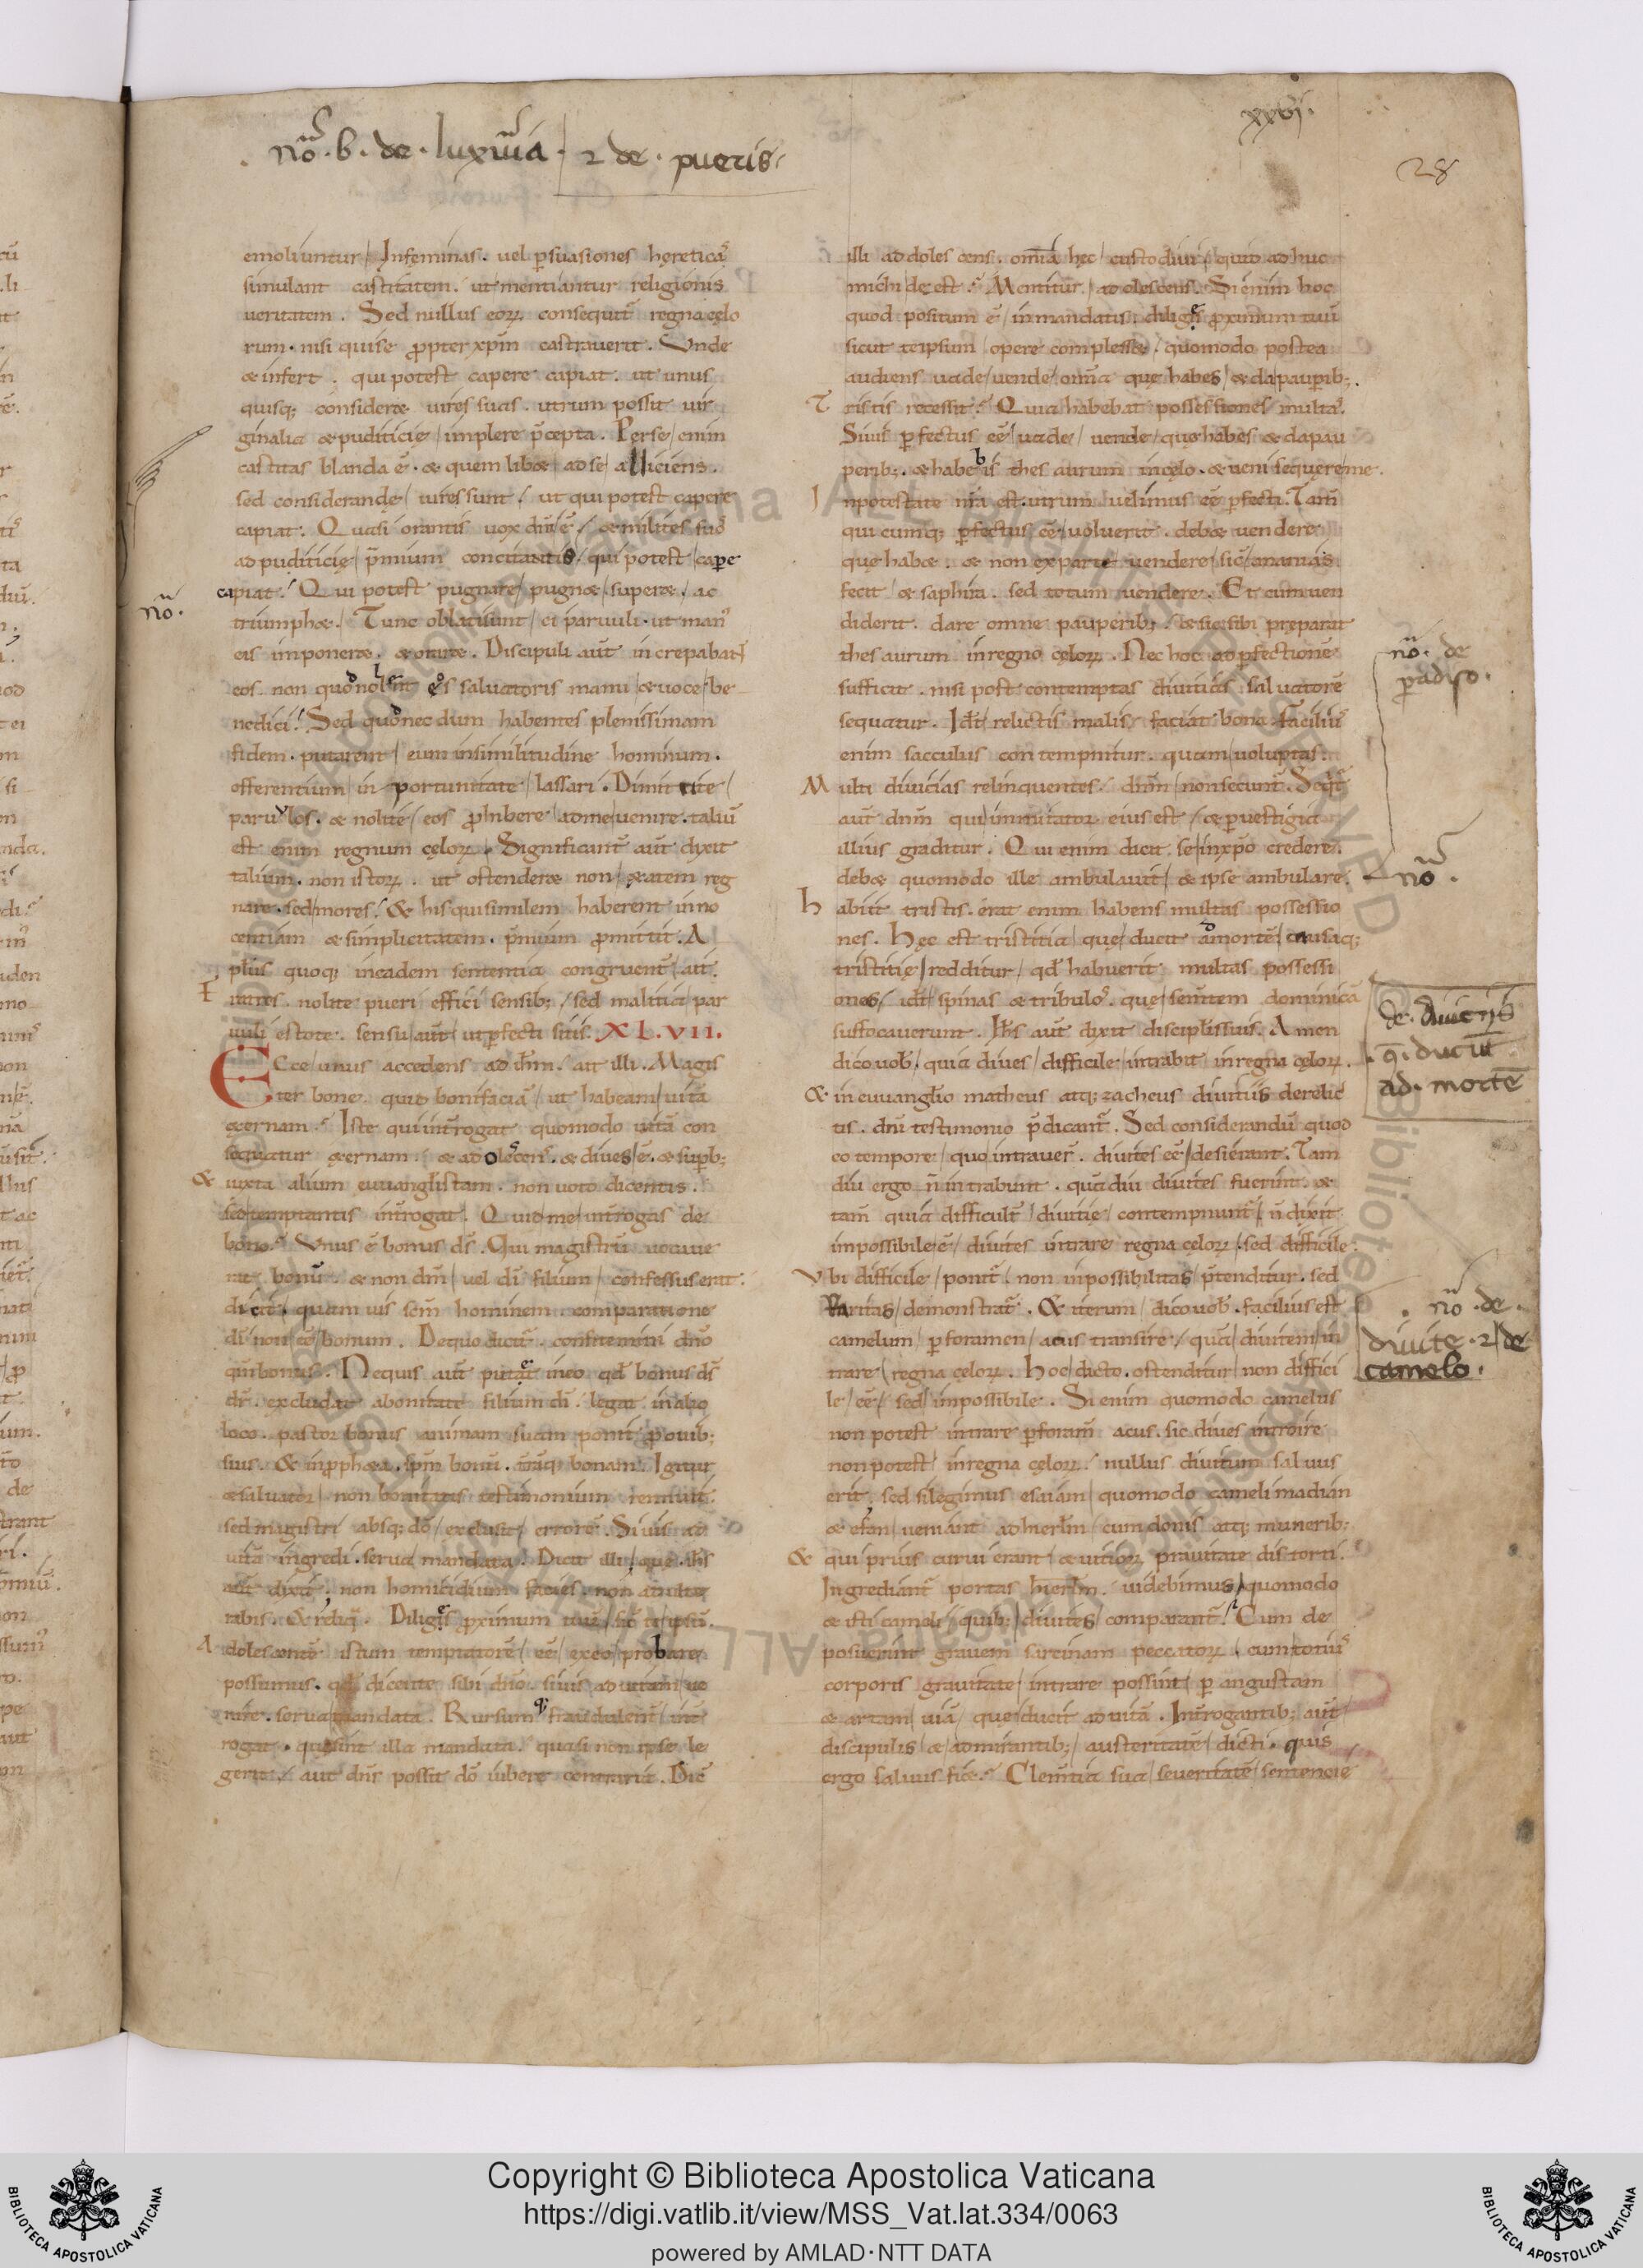 xxvi.
28
.no. b. de. luxuria. 2 de. pueris.
emoliuntur Infeminas. uel psuasiones hereticas
simulant castitatem. ut mentiantur religionis
ueritatem. Sed nullus eorum consequit regna celo
rum. nisi qui se ppter xpm castrauerit. Vnde
& infert. qui potest capere capiat. ut unus
quisq; consideret uires suas. utrum possit uir
ginalia & puditicie implere pcepta. Per se enim
castitas blanda e. & quem libet ad se alliciens.
sed considerande uires sunt. ut qui potest capere
capiat. Quasi orantis uox dni e & milites suos
ad puditicie pmium concitantis qui potest capere
capiat. Qui potest pugnare pugnet superet. ac
no.
triumphet. Tunc oblati sunt ei paruuli. ut man
eis imponeret. & oraret. Discipuli aut increpabant
eos. non quod nollent eos saluatoris manu & uoce be
nedici. Sed quod nec dum habentes plenissimam
fidem. putarent eum in similitudine hominum.
offerentium in portunitate lassari. Dimittite
paruulos. & nolite eos phibere ad me uenire. talium
est enim regnum celorum. Significant aut dixit
talium. non istorum. ut ostenderet non etatem reg
nare. sed mores. & his qui similem haberent inno
centiam & simplicitatem. pmium pmittit. A
plus quoq; in eadem sententia congruent ait.
Fratres. nolite pueri effici sensib; sed malitia par
uuli estote. sensu aut ut pfecti sitis. XL.VII.
Ecce unus accedens ad ihm. ait illi. Magis
ter bone. quid boni faciam ut habeam uitam
eternam. Iste qui introgat quomodo uitam con
sequatur eternam. & adolescens. & diues e. & superb;
& iuxta alium euuanglistam. non uoto dicentis.
sed temptantis introgat. Quid me introgas de
bono. Vnus e bonus ds. Qui magistrum uocaue
rat bonum. & non dm uel di filium confessus erat.
dicit. quam uis scm hominem. comparatione
di non ee bonum. De quo dicit. confitemini dno
qm bonus. Ne quis aut putet in eo qd bonus ds
dr. excludat a bonitate filium di. legat in alio
loco. pastor bonus animam suam ponit p ouib;
suis. & in ppheta. spm bonum. terraq; bonam. Igitur
& saluator non bonitatis testimonium rennuit.
sed magistri absq; do exclusit errorem. Si uis ad
uitam ingredi. serua mandata. Dicit illi que. ihs
aut dixit. non homicidium facies. non adulte
rabis. & reliq. Diliges pximum tuum sic te ipsum.
Adolescente istum temptatorem ee ex eo probare
possumus. qd dicente sibi dno. si uis ad uitam ue
nire. serua mandata. Rursum fraudulent int
rogat. que sint illa mandata. quasi non ipse le
gerit. aut dns possit do iubere contraria. Dic
illi adolescens. omia hec custodiui quid ad huc
michi deest. Mentitur adolescens. Si enim hoc
quod positum e in mandatis. diliges pximum tuum
sicut te ipsum opere complesset. quomodo postea
audiens uade uende omia que habes & da paupib;.
Tristis recessit. Quia habebat possessiones multas.
Si uis pfectus ee uade uende que habes & da pau
perib;. & habebis thesaurum in celo. & ueni sequere me.
In potestate nra est. utrum uelimus ee pfecti. Tam
qui cumq; pfectus ee uoluerit. debet uendere
que habet. & non ex parte uendere sic ananias
fecit & saphira. sed totum uendere. Et cum uen
diderit. dare omne pauperib;. & sic sibi preparat
thesaurum in regno celorum. Nec hoc ad pfectionem
no. de
paradiso.
sufficit. nisi post contemptas diuitias saluatorem
sequatur. Id relictis malis faciat bona. Facilius
enim sacculus contempnitur. quam uoluptas.
Multi diuicias relinquentes. dnm non secunt. Seqt
aut dnm qui imitator eius est & p uestigia
illius graditur. Qui enim dicit se in xpo credere.
debet quomodo ille ambulauit & ipse ambulare.
no.
habiit tristis. erat enim habens multas possessio
nes. Hec est tristitia que ducit ad mortem causaq;
tristitie redditur qd habuerit multas possessi
ones id spinas & tribulos. que sementem dominicam
suffocauerunt. Ihs aut dixit discipulis suis. Amen
de. diuitijs
.q. ducunt
ad. mortem
dico uob. quia diues difficile intrabit in regna celorum.
& in euuanglio matheus atq; zacheus diuitiis derelic
tis. dni testimonio pdicant. Sed considerandum quod
eo tempore quo intrauer. diuites ee desierant. Tam
diu ergo n intrabunt. quam diu diuites fuerint. &
tam quia difficult diuitie contempnunt n dixit
impossibile e diuites intrare regna celorum. sed difficile.
Vbi difficile ponit. non inpossibilitas ptenditur. sed
Raritas demonstrat. & iterum dico uob. facilius est
. no. de.
diuite. 2 de
camelo.
camelum p foramen acus transire qua diuitem in
trare regna celorum. Hoc dicto. ostenditur non diffici
le ee sed impossibile. Si enim quomodo camelus
non potest intrare p foram acus. sic diues introire
non potest in regna celorum. nullus diuitum saluus
erit. sed si legimus esaiam quomodo cameli madian
& efan ueniant ad hierlm cum donis atq; munerib;
& qui prius curui erant & uitiorum prauitate distorti.
Ingrediant portas hierlm. uidebimus quomodo
& isti cameli quib; diuites comparant. Cum de
posuerint grauem sarcinam peccatorum. cum totius
corporis grauitate intrare possint p angustam
& artam uiam que ducit ad uitam. Introgantib; aut
discipulis & admirantib; austeritatem dicti. quis
ergo saluus fiet. Clementia sua seueritatem sentencie
Copyright © Biblioteca Apostolica Vaticana
https://digi.vatlib.it/view/MSS_Vat.lat.334/0063
powered by AMLAD·NTT DATA
BIBLIOTECA APOSTOLICA VATICANA
BIBLIOTECA APOSTOLICA VATICANA